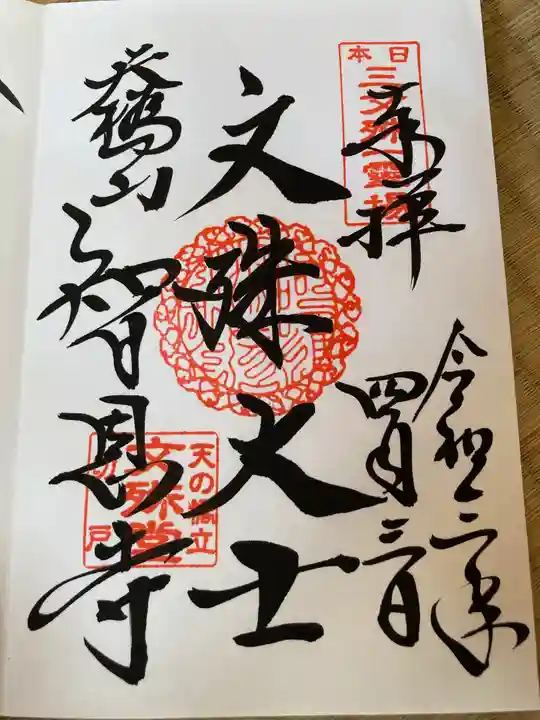 日本
三文殊一霊場
奉拝
令和三年
四月三日
文殊大士
天橋山
智恩寺
天の橋立
文殊堂
切戸